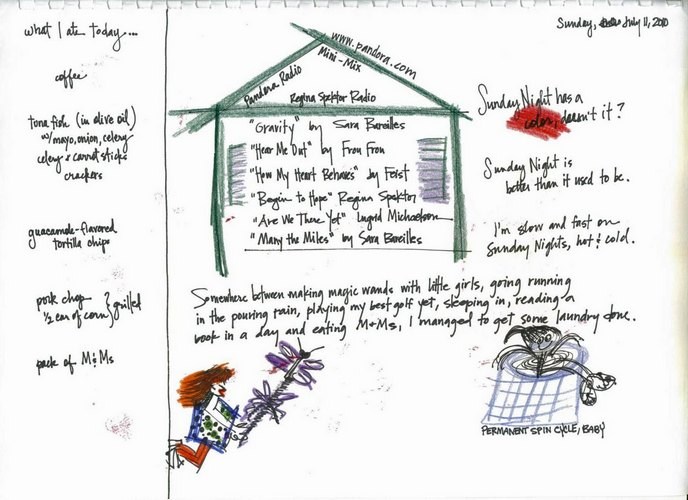 what I ate today...
coffee
tuna fish (in olive oil)
w/mayo, onion, celery
celery & carrot sticks
crackers
guacamole-flavored
tortilla chips
pork chop
1/2 ear of corn } grilled
pack of M&Ms
www.pandora.com
Mini-Mix
Pandora Radio
Regina Spektor Radio
"Gravity" by Sara Bareilles
"Hear Me Out" by Frou Frou
"How My Heart Behaves" by Feist
"Begin to Hope" Regina Spektor
"Are We There Yet" Ingrid Michaelson
"Many the Miles" by Sara Bareilles
Sunday, July 11, 2010
Sunday Night has a
color, doesn't it?
Sunday Night is
better than it used to be.
I'm slow and fast on
Sunday Nights, hot & cold.
Somewhere between making magic wands with little girls, going running
in the pouring rain, playing my best golf yet, sleeping in, reading a
book in a day and eating M&Ms, I managed to get some laundry done.
PERMANENT SPIN CYCLE, BABY